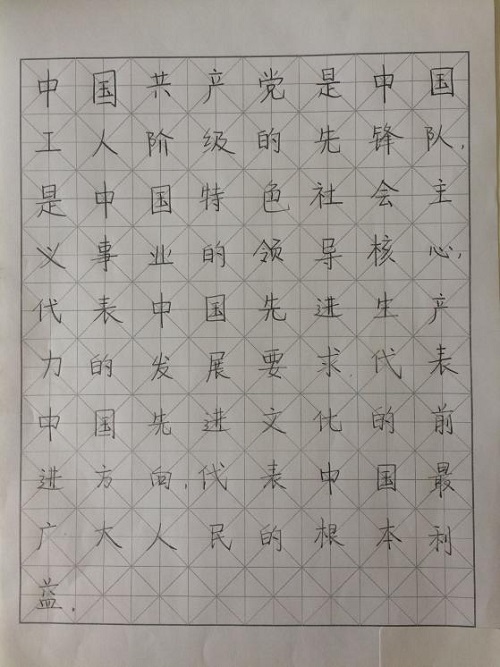 中国共产党是中国
工人阶级的先锋队,
是中国特色社会主
义事业的领导核心,
代表中国先进生产
力的发展要求代表
中国先进文化的前
进方向,代表中国最
广大人民的根本利
益.